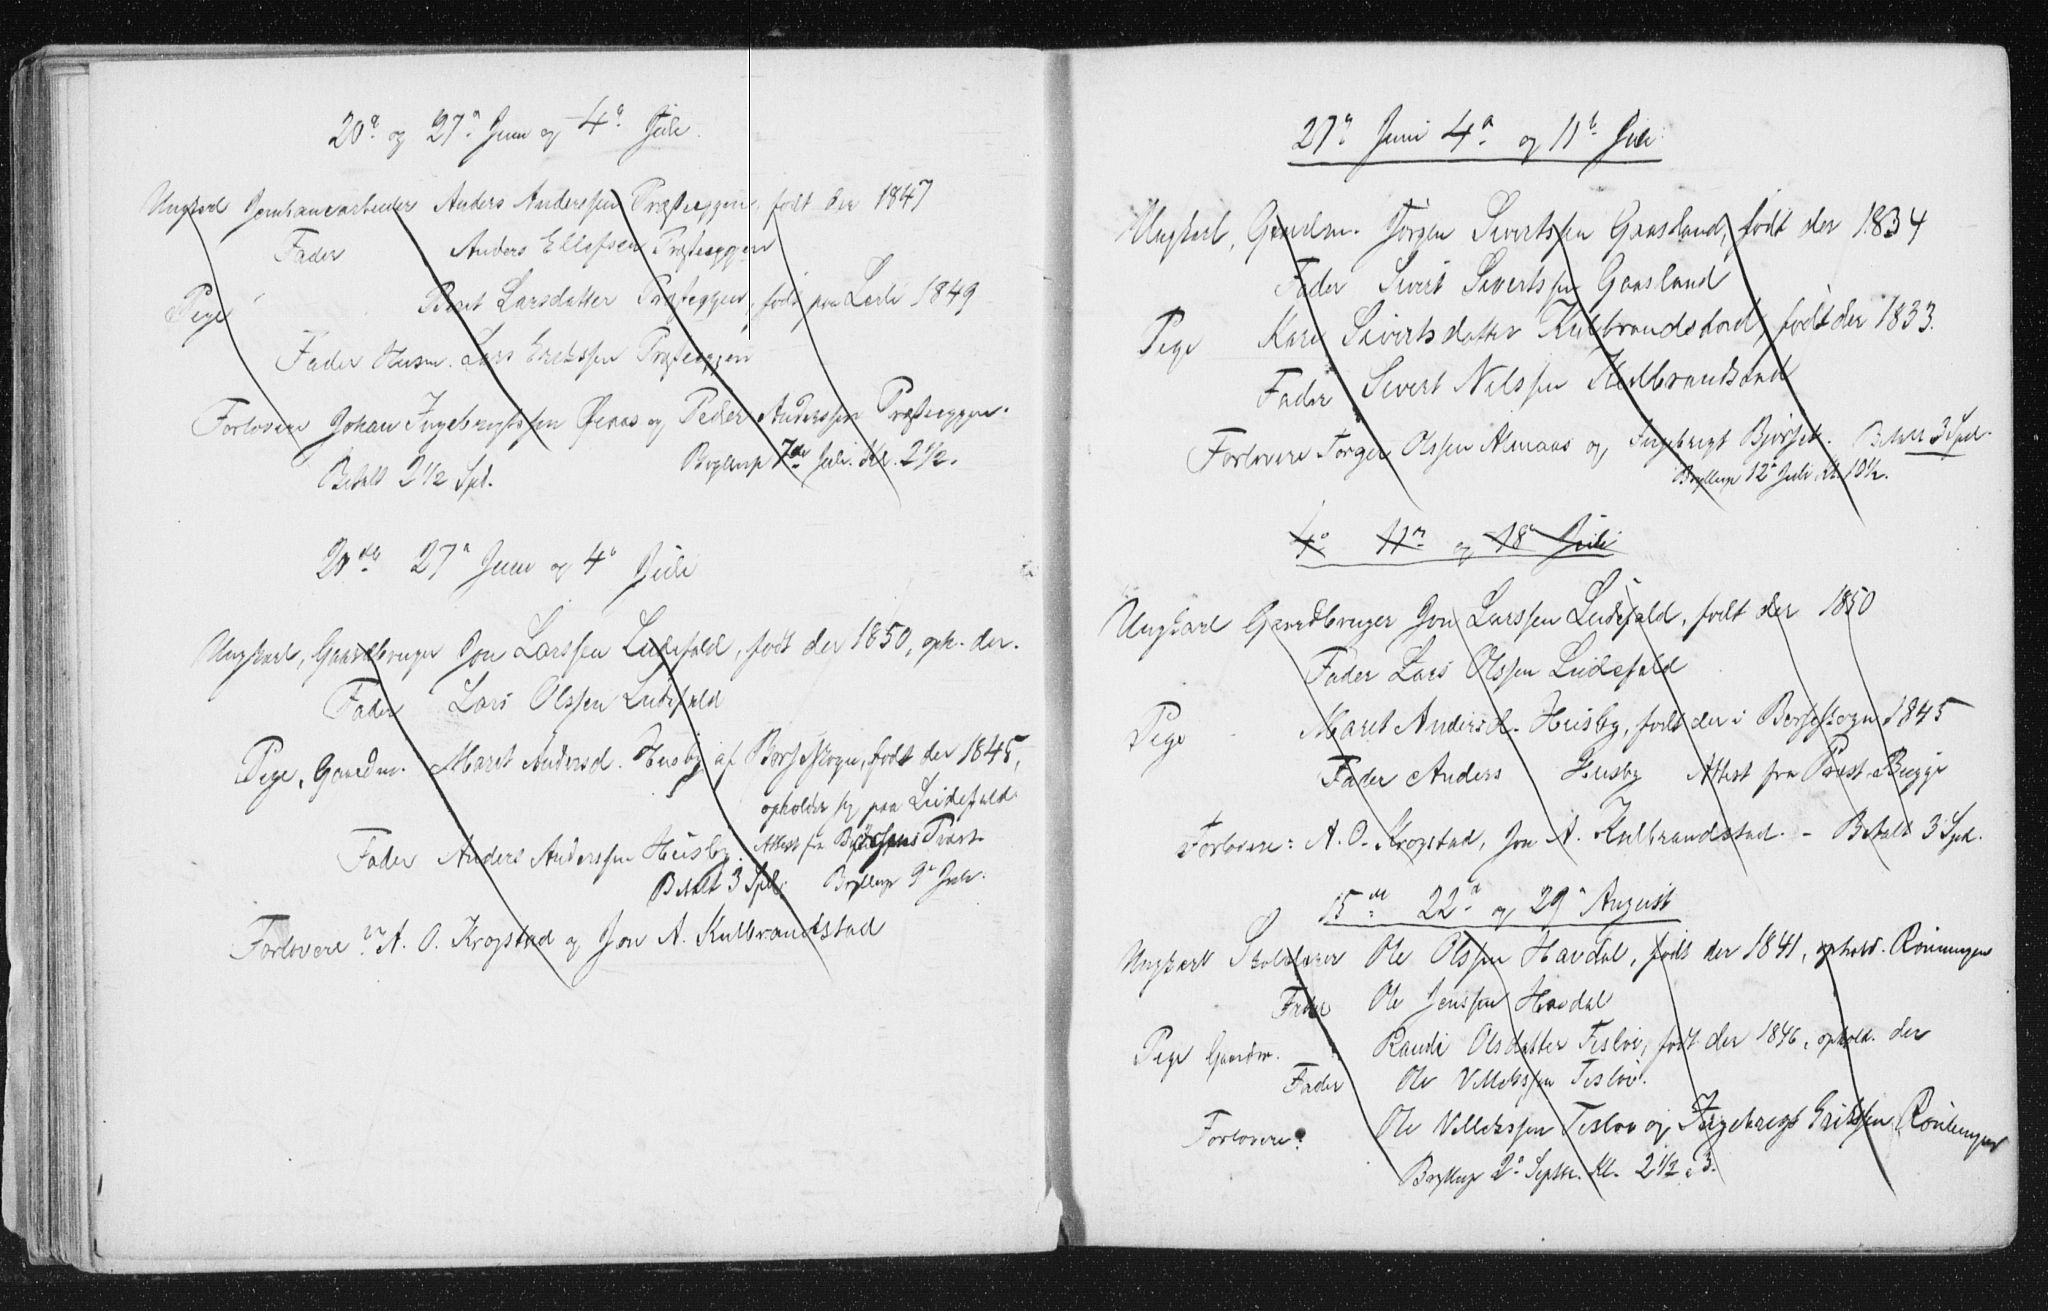 20ᵃ og 27ᵃ Juni og 4ᵃ Juli.
Ungkarl Jernbanearbeider Anders Anderssen Præsteggen, født der 1847
Fader Anders Ellefsen Præsteggen
Pige Beret Larsdatter Præsteggen, født paa 1849
Fader Husm. Lars Erikssen Præsteggen
Forlovere Johan Ingebregtssen Øiaas og Peder Anderssen Præsteggen.
Betalt 2½ Spd. Bryllup 7de Juli. Kl. 2½.
20de 27ᵃ Juni og 4ᵃ Juli
Ungkarl, Gaardbruger Jon Larssen Ludefald, født der 1850, oph. der.
Fader Lars Olssen Ludefald
Pige, Gaardm. Maret Andersd. Husby af Børseskogn, født der 1845,
opholder sig paa Ludefald.
Fader Anders Anderssen Husby. Attest fra Prast.
Betalt 3 Spd. Bryllup 9ᵃ Juli.
Forlovere A. O. Krogstad og Jon A. Kulbrandstad
27ᵃ Juni 4ᵃ og 11ᵗ Juli
Ungkarl, Gaardm. Jørgen Sivertssen Gaasland, født der 1834
Fader Sivert Sivertssen Gaasland
Pige Kari Sivertsdatter Kulbrandstad, født der 1833.
Fader Sivert Nilssen Kulbrandstad
Forlovere Torger Olssen Almaas og Ingebrigt Bjørset. Betalt 3 Spd.
Bryllup 12ᵃ Juli. Kl. 10½.
4ᵃ 11ᵃ og 18ᵃ Juli
Ungkarl Gaardbruger Jon Larssen Ludefald, født der 1850
Fader Lars Olssen Ludefald
Pige Maret Andersd. Husby, født der i Børseskogn 1845
Fader Anders Husby Attest fra Prast Bugge
Forlovere: A. O. Krogstad, Jon A. Kulbrandstad. - Betalt 3 Spd.
15de 22ᵃ og 29ᵃ August
Ungkarl Skolelærer Ole Olssen Havdal, født der 1841, ophold. Rønningen
Fader Ole Jenssen Havdal
Pige Gaardm. Randi Olsdatter Tesløi, født der 1846, ophold. der
Fader Ole Villekssen Tesløi.
Forlovere: Ole Villekssen Tesløi og Ingebrigt Erikssen Rønningen
Bryllup 2ᵃ Septbr. Kl. 2½ a 3.